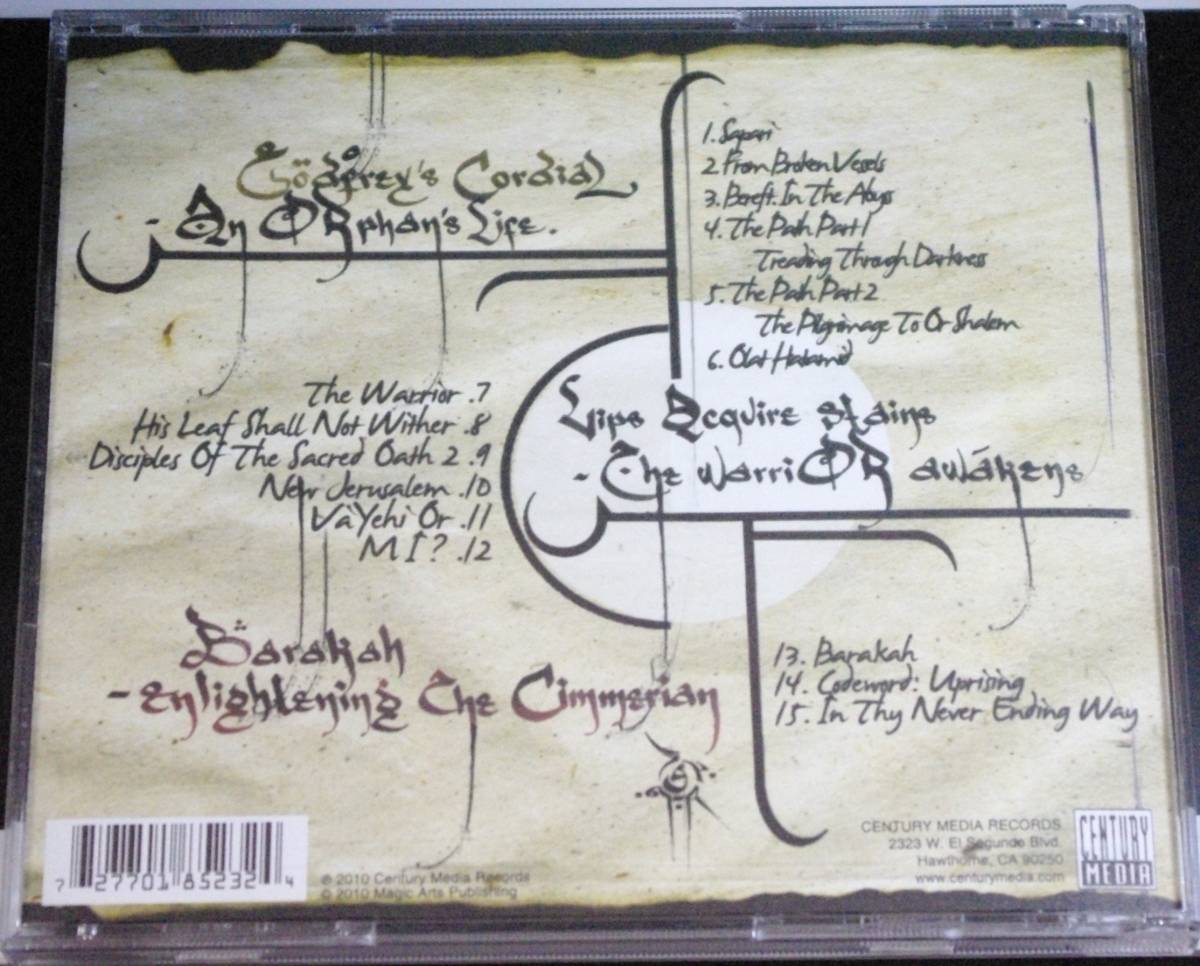 Godfrey's Cordial
- An ORphan's Life.
1. Sapari
2. From Broken Vessels
3. Bereft In The Abyss
4. The Path Part 1
Treading Through Darkness
5. The Path Part 2
The Pilgrimage To Or Shalem
6. Olat Hatamid
Lips Acquire Stains
- The WarriOR awákens
The Warrior .7
His Leaf Shall Not Wither .8
Disciples Of The Sacred Oath 2 .9
New Jerusalem .10
Va Yehi Or .11
M I ? .12
Barakah
- Enlightening The Cimmerian
13. Barakah
14. Codeword: Uprising
15. In Thy Never Ending Way
7 27701 85232 4
℗ 2010 Century Media Records
© 2010 Magic Arts Publishing
CENTURY MEDIA RECORDS
2323 W. El Segundo Blvd.
Hawthorne, CA 90250
www.centurymedia.com
CENTURY
MEDIA